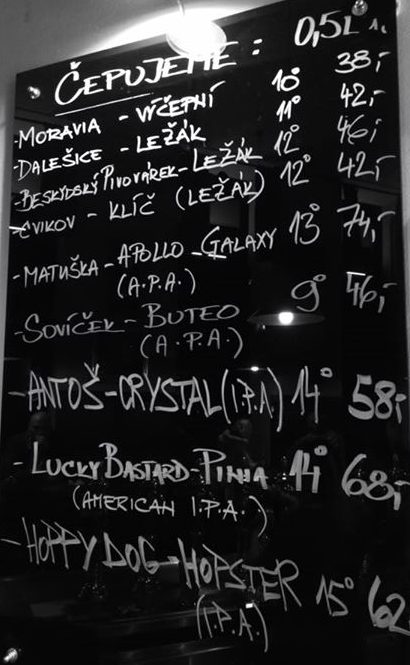 ČEPUJEME : 0,5L
-MORAVIA - VÝČEPNÍ 10° 38,-
DALEŠICE - LEŽÁK 11° 42,-
-BESKYDSKÝ PIVOVÁREK-LEŽÁK 12° 46,-
-CVIKOV - KLÍČ (LEŽÁK) 12° 42,-
-MATUŠKA-APOLLO-GALAXY 13° 74,-
(A.P.A.)
-SOVÍČEK-BUTEO 9° 46,-
(A.P.A.)
-ANTOŠ-CRYSTAL(I.P.A) 14° 58,-
-LUCKY BASTARD-PINIA 14° 68,-
(AMERICAN I.P.A.)
-HOPPY DOG-HOPSTER 15° 62
(I.P.A.)